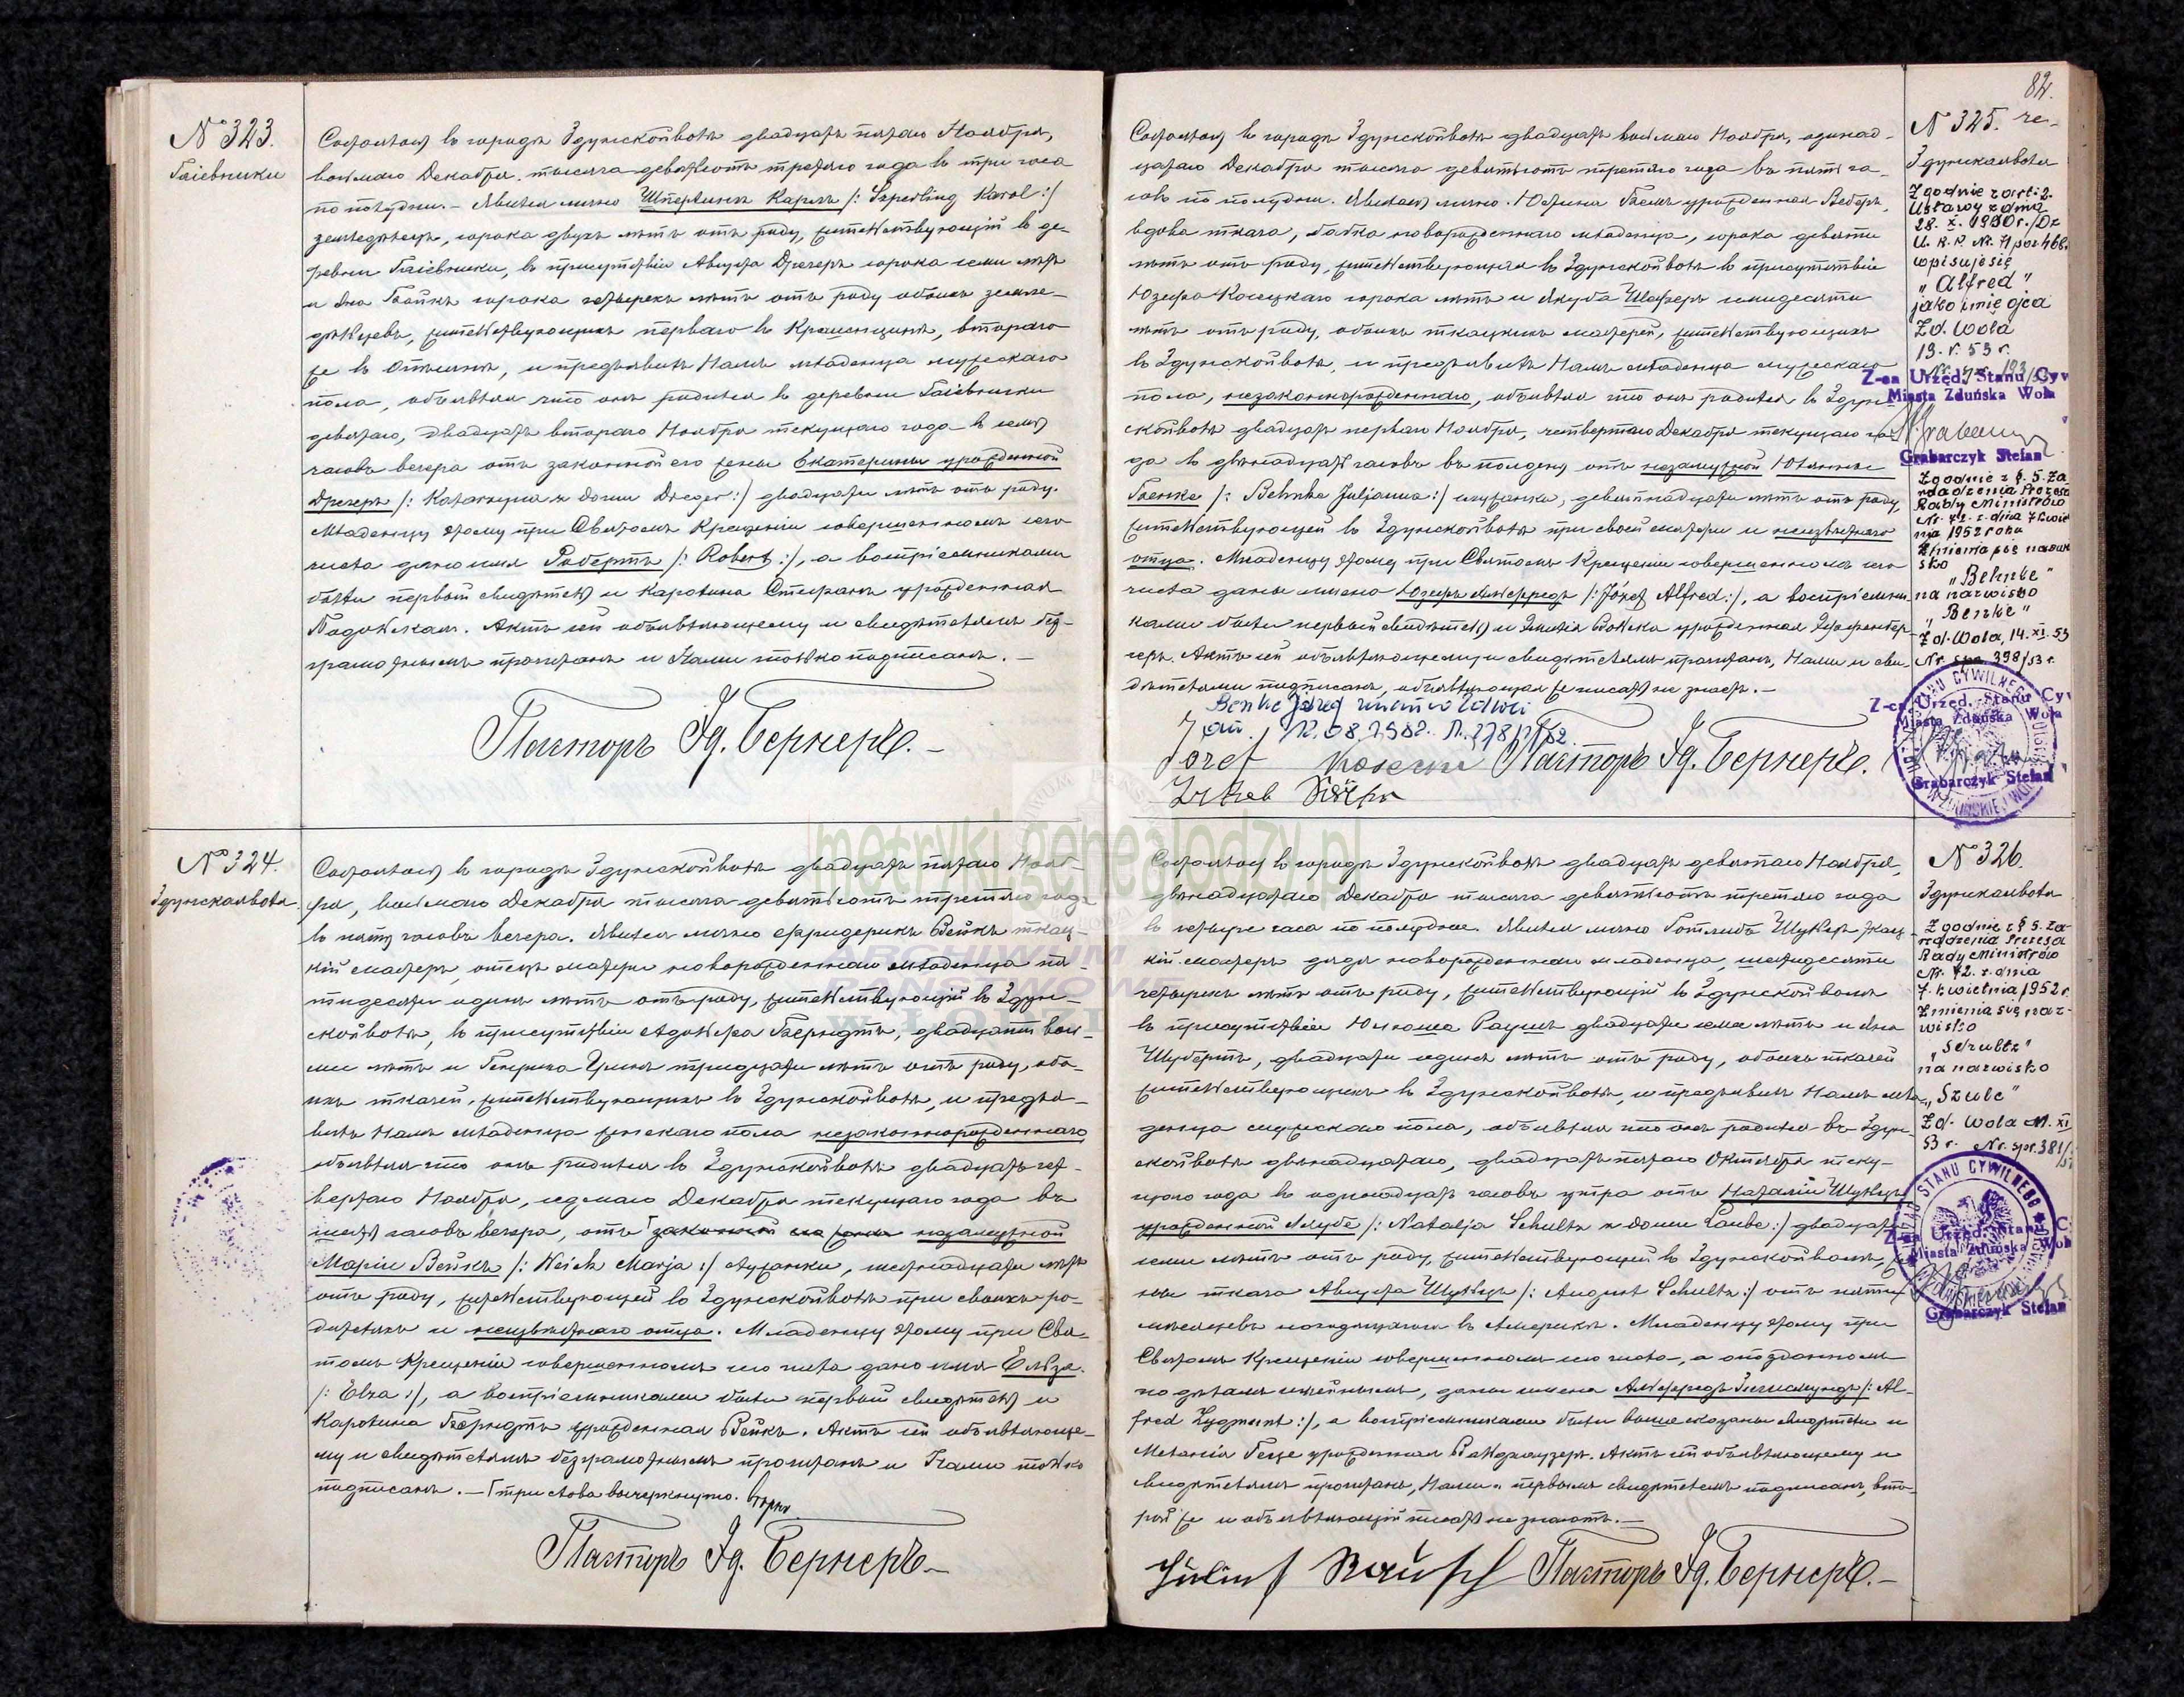 № 323.
Гаіевники
Состоялось въ городѣ Здунской Волѣ двадцать пятаго Ноября,
восьмаго Декабря тысяча девятьсотъ третьяго года въ три часа
по полудни. – Явился лично Шперлингъ Карлъ /: Szperling Karol :/
земледѣлецъ, сорока двухъ лѣтъ отъ роду, жительствующій въ де-
ревни Гаіевники, въ присутствіи Августа Дрегеръ сорока семи лѣтъ
и сорока четырехъ лѣтъ отъ роду обоихъ земле-
дѣльцевъ, жительствующихъ перваго въ второго
же въ и предъявилъ Намъ младенца мужескаго
пола, объявляя что онъ родился въ деревни Гаіевники
девятаго, двадцать втораго Ноября текущаго года въ семь
часовъ вечера отъ законной его жены Екатерины урожденной
Дрегеръ /: Katarzyna z domu Dreger :/ двадцати лѣтъ отъ роду.
Младенцу этому при Святомъ Крещеніи совершенномъ сего
числа дано имя Робертъ /: Robert :/, а воспріемниками
были первый свидѣтель и Каролина урожденная
Актъ сей объявляющему и свидѣтелямъ без-
грамотнымъ прочитанъ и Нами только подписанъ. –
Пасторъ Эд. Бернеръ. –
№ 324.
Здунскаявола.
Состоялось въ городѣ Здунской Волѣ двадцать пятаго Нояб-
ря, восьмаго Декабря тысяча девятьсотъ третьяго года
въ пять часовъ вечера. Явился лично Фридерикъ Вейкъ ткац-
кій мастеръ, отецъ матери новорожденнаго младенца пя-
тидесяти одинъ лѣтъ отъ роду, жительствующій въ Здун-
ской Волѣ, въ присутствіи Адольфа Берндтъ, двадцати вось-
ми лѣтъ и Генриха тридцати лѣтъ отъ роду, обо-
ихъ ткачей, жительствующихъ въ Здунской Волѣ, и предъя-
вилъ Намъ младенца женскаго пола незаконнорожденнаго
объявляя что онъ родился въ Здунской Волѣ двадцать чет-
вертаго Ноября, седьмаго Декабря текущаго года въ
шесть часовъ вечера, отъ законной его жены незамужной
Маріи Вейкъ /: Weich Marja :/ служанки, шестнадцати лѣтъ
отъ роду, жительствующей въ Здунской Волѣ при своихъ ро-
дителяхъ и неизвѣстнаго отца. Младенцу этому при Свя-
томъ Крещеніи совершенномъ сего числа дано имя Ельза.
/: Elza :/, а воспріемниками были первый свидѣтель и
Каролина Берндтъ урожденная Вейкъ. Актъ сей объявляюще-
му и свидѣтелямъ безграмотнымъ прочитанъ и Нами только
подписанъ. – три слова вычеркнуто.
Пасторъ Эд. Бернеръ. –
82.
№ 325.
Здунскаявола
Состоялось въ городѣ Здунской Волѣ двадцать восьмаго Ноября, одинад-
цатаго Декабря тысяча девятьсотъ третьяго года въ пять ча-
совъ по полудни. Явилась лично урожденная Веберъ,
вдова ткача, бабка новорожденнаго младенца, сорока девяти
лѣтъ отъ роду, жительствующая въ Здунской Волѣ въ присутствіи
Юзефа Косецкаго сорока лѣтъ и Якуба Шеферъ семидесяти
лѣтъ отъ роду, обоихъ ткацкихъ мастеровъ, жительствующихъ
въ Здунской Волѣ, и предъявила Намъ младенца мужескаго
пола, незаконнорожденнаго, объявляя что онъ родился въ Здун-
ской Волѣ двадцать перваго Ноября, четвертаго Декабря текущаго го-
да въ двѣнадцать часовъ въ полдень отъ незамужной Юліанны
Бенке /: Behnke Juljanna :/ служанки, девятнадцати лѣтъ отъ роду,
жительствующей въ Здунской Волѣ при своей матери и неизвѣстнаго
отца. Младенцу этому при Святомъ Крещеніи совершенномъ сего
числа даны имена Юзефъ Альфредъ /: Józef Alfred :/, а воспріемни-
ками были первый свидѣтель и урожденная
Актъ сей объявляющей и свидѣтелямъ прочитанъ, Нами и сви-
дѣтелями подписанъ, объявляющая же писать не знаетъ. –
Benke Józef
12.08.1982.
Józef
Пасторъ Эд. Бернеръ.
Zgodnie z art. 2.
Ustawy z dnia
28. X. 1950 r. /Dz
U. R. P. Nr. 51 poz 468
wpisuje się
„Alfred"
jako imię ojca
Zd. Wola
19. V. 53 r.
Z-ca Urzęd. Stanu Cyw
Miasta Zduńska Wola
Grabarczyk Stefan
Zgodnie z § 5. Za
rządzenia Prezesa
Rady Ministrów
Nr. 72. z dnia 7 kwiet
nia 1952 roku
Zmienia się nazwi
sko
„Behnke"
na nazwisko
„Benke"
Zd. Wola, 14. XI. 53
Nr. spr. 398/53 r.
Z-ca Urzęd. Stanu Cyw
Miasta Zduńska Wola
Grabarczyk Stefan
№ 326.
Здунскаявола
Состоялось въ городѣ Здунской Волѣ двадцать девятаго Ноября,
двѣнадцатаго Декабря тысяча девятьсотъ третьяго года
въ четыре часа по полудни. Явился лично Готлибъ Шульцъ ткац-
кій мастеръ дядя новорожденнаго младенца, шестидесяти
четырехъ лѣтъ отъ роду, жительствующій въ Здунской Волѣ
въ присутствіи Юліуша Раушъ двадцати семи лѣтъ и Яна
Шубертъ, двадцати одинъ лѣтъ отъ роду, обоихъ ткачей
жительствующихъ въ Здунской Волѣ, и предъявилъ Намъ мла-
денца мужескаго пола, объявляя что онъ родился въ Здун-
ской Волѣ двѣнадцатаго, двадцать пятаго Октября теку-
щаго года въ одинадцать часовъ утра отъ Наталіи Шульцъ
урожденной Ляубе /: Natalja Schultz z domu Laube :/ двадцати
семи лѣтъ отъ роду, жительствующей въ Здунской Волѣ, же-
ны ткача Августа Шульцъ /: August Schultz :/ отъ пяти
мѣсяцевъ находящагося въ Америкѣ. Младенцу этому при
Святомъ Крещеніи совершенномъ сего числа, а опозданномъ
по дѣламъ семейнымъ, даны имена Альфредъ Зигмундъ /: Al-
fred Zygmunt :/, а воспріемниками были выше сказаны свидѣтели и
Меланія урожденная Актъ сей объявляющему и
свидѣтелямъ прочитанъ, Нами и первымъ свидѣтелемъ подписанъ, вто-
рой же и объявляющій писать не знаютъ. –
Julius Rausch Пасторъ Эд. Бернеръ. –
Zgodnie z § 5. Za-
rządzenia Prezesa
Rady Ministrów
Nr. 72. z dnia
7. kwietnia 1952 r
Zmienia się naz-
wisko
„Schultz"
na nazwisko
„Szulc"
Zd. Wola 11. XI
53 r. Nr. spr. 381/
Z-ca Urzęd. Stanu C
Miasta Zduńska Wola
Grabarczyk Stefan
metryki.genealodzy.pl
ARCHIWUM
PAŃSTWOWE
W ŁODZI